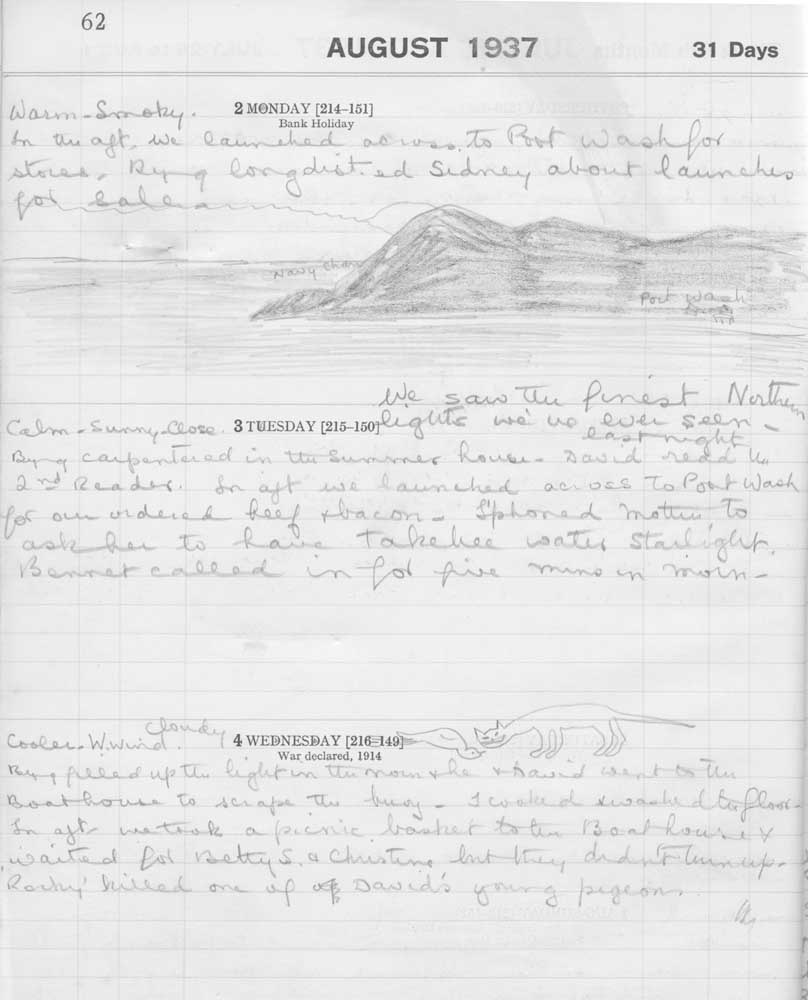 62
AUGUST 1937 31 Days
Warm - Smoky. 2 MONDAY [214–151]
Bank Holiday
In the aft. we launched across to Port Wash for
stores. Byng longdist.ed Sidney about launches
for sale
Navy Chan
Port Wash
We saw the finest Northern
Calm - Sunny - Close. 3 TUESDAY [215–150] lights we've ever seen -
last night
Byng carpentered in the Summer house - David read
2nd Reader. In aft we launched across to Port Wash
for our ordered beef & bacon - I 'phoned Mother to
ask her to have Takehee water Starlight.
Bennet called in for five mins in morn -
cloudy
Cooler - W. wind. 4 WEDNESDAY [216–149]
War declared, 1914
Byng filled up the light in the morn & he & David went to the
Boathouse to scrape the buoy - I cooked & washed the floor -
In aft. we took a picnic basket to the Boathouse &
waited for Betty S. & Christine but they didn't turn up.
'Rocky' killed one of David's young pigeons.